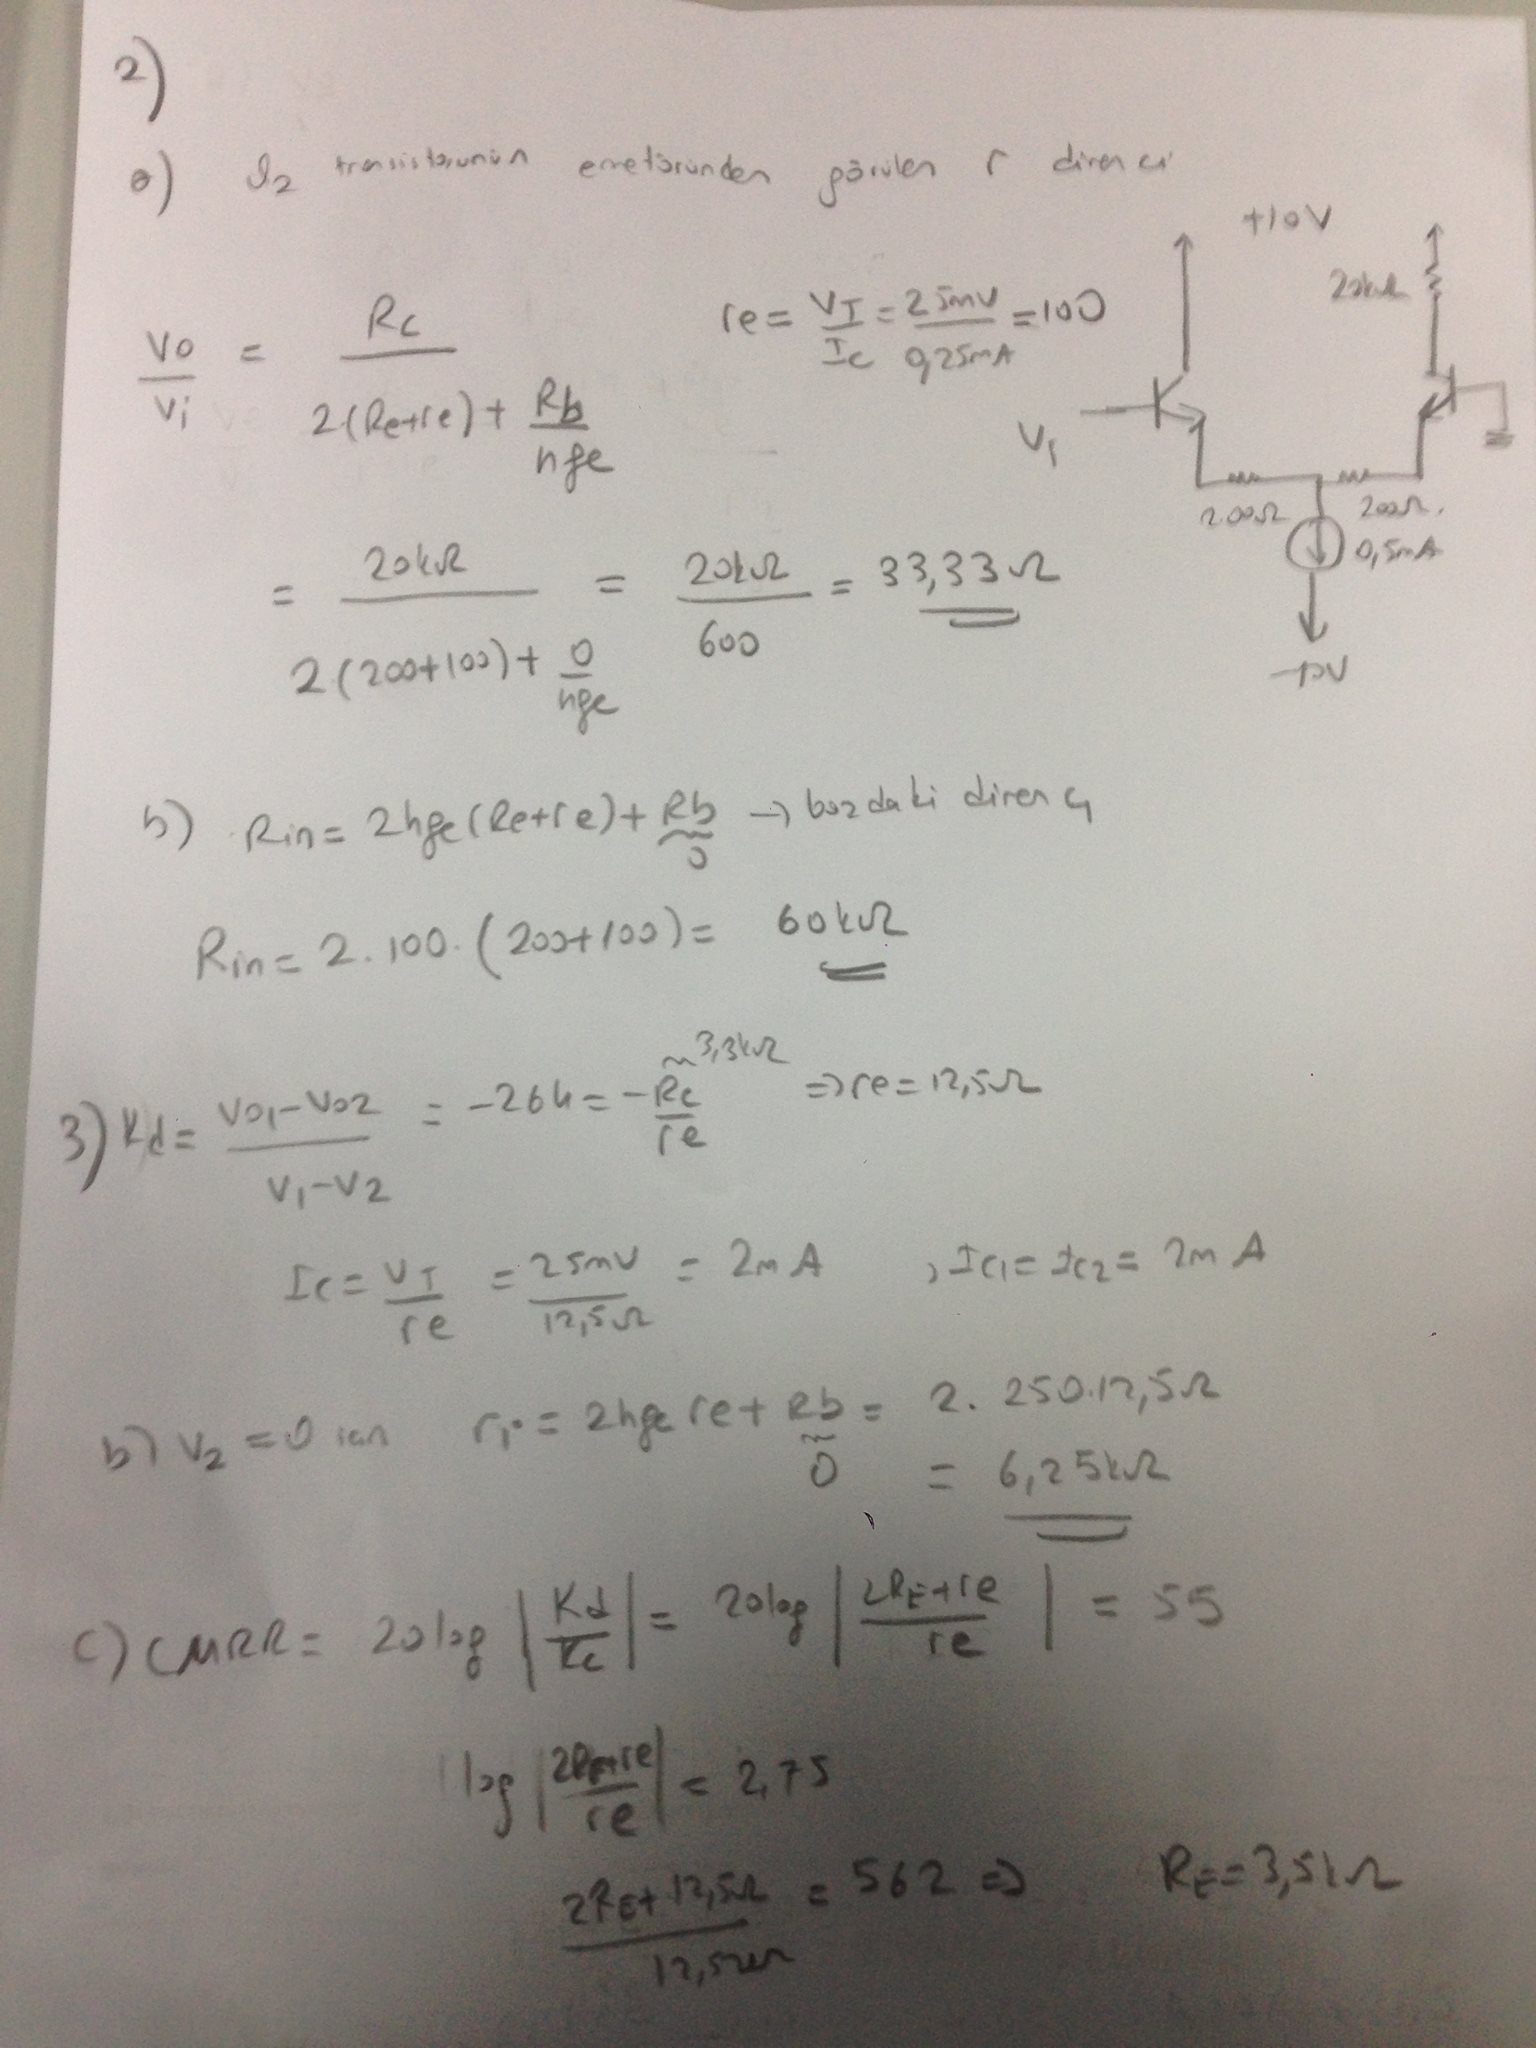 2)
a) Q2 transistorunun emetöründen görülen r direnci
+10V
20kΩ
Vo/Vi = Rc/(2(Re+re)+Rb/hfe)
re = VT/Ic = 25mV/0,25mA = 100
V1
200Ω 200Ω
0,5mA
-10V
= 20kΩ/(2(200+100)+0/hfe) = 20kΩ/600 = 33,33Ω
b) Rin = 2hfe(Re+re)+Rb → bazdaki direnç
0
Rin = 2.100.(200+100) = 60kΩ
3,3kΩ
3) Kd = (Vo1-Vo2)/(V1-V2) = -264 = -Rc/re ⇒ re = 12,5Ω
Ic = VT/re = 25mV/12,5Ω = 2mA , Ic1 = Ic2 = 2mA
b) V2 = 0 icin ri = 2hfe re + Rb = 2.250.12,5Ω
0 = 6,25kΩ
c) CMRR = 20log |Kd/Kc| = 20log |(2RE+re)/re| = 55
log |(2RE+re)/re| = 2,75
(2RE+12,5Ω)/12,5Ω = 562 ⇒ RE = 3,5kΩ